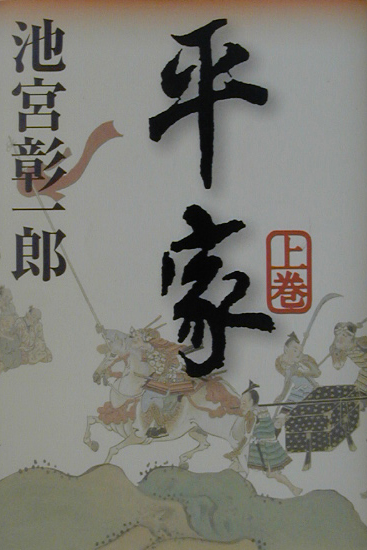 平家
上巻
池宮彰一郎